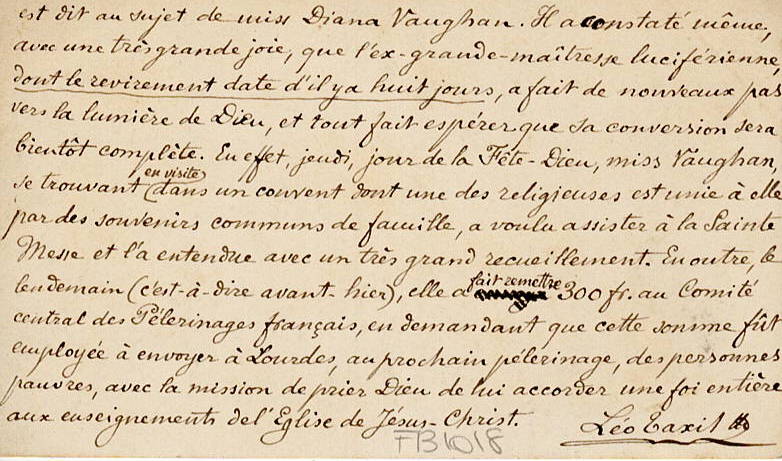 est dit au sujet de miss Diana Vaughan. Il a constaté même,
avec une très grande joie, que l'ex-grande-maîtresse luciférienne,
dont le revirement date d'il y a huit jours, a fait de nouveaux pas
vers la lumière de Dieu, et tout fait espérer que sa conversion sera
bientôt complète. En effet, jeudi, jour de la Fête-Dieu, miss Vaughan,
se trouvant (en visite) dans un couvent dont une des religieuses est unie à elle
par des souvenirs communs de famille, a voulu assister à la Sainte
Messe et l'a entendue avec un très grand recueillement. En outre, le
lendemain (c'est-à-dire avant-hier), elle a fait remettre 300 fr. au Comité
central des Pélerinages français, en demandant que cette somme fût
employée à envoyer à Lourdes, au prochain pélerinage, des personnes
pauvres, avec la mission de prier Dieu de lui accorder une foi entière
aux enseignements de l'Eglise de Jésus-Christ.
Léo Taxil
FB1018